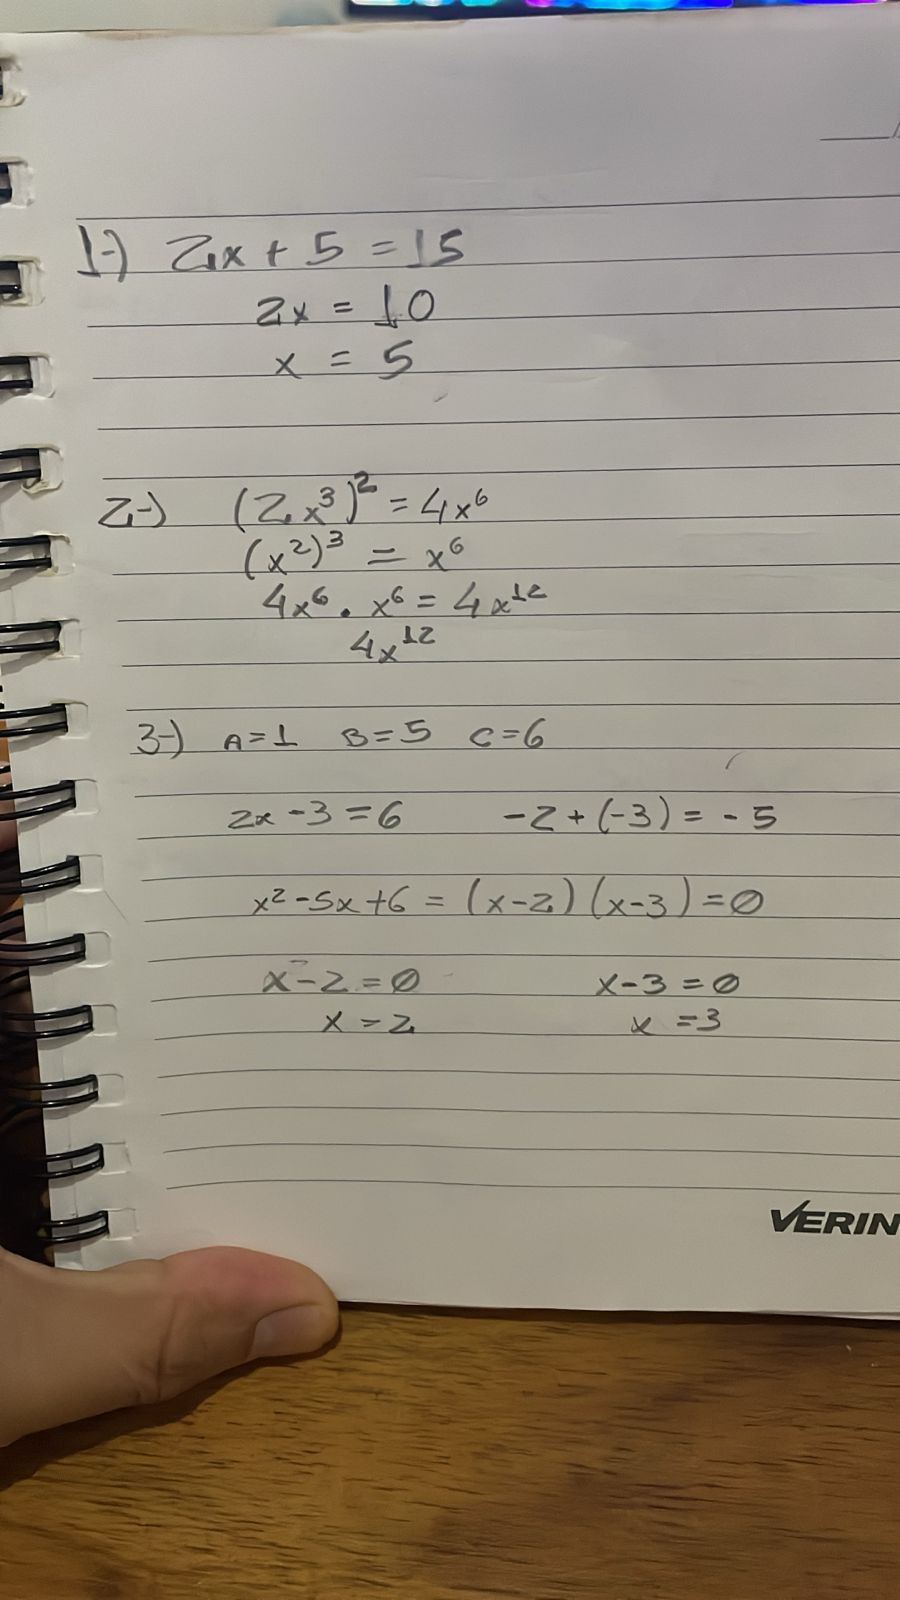 1-) 2x + 5 = 15
2x = 10
x = 5
2-) (2x³)² = 4x⁶
(x²)³ = x⁶
4x⁶ . x⁶ = 4x¹²
4x¹²
3-) A=1 B=5 C=6
2x -3 = 6 -2 + (-3) = -5
x² -5x +6 = (x-2) (x-3) = 0
x - 2 = 0 x-3 = 0
x = 2 x = 3
VERIN